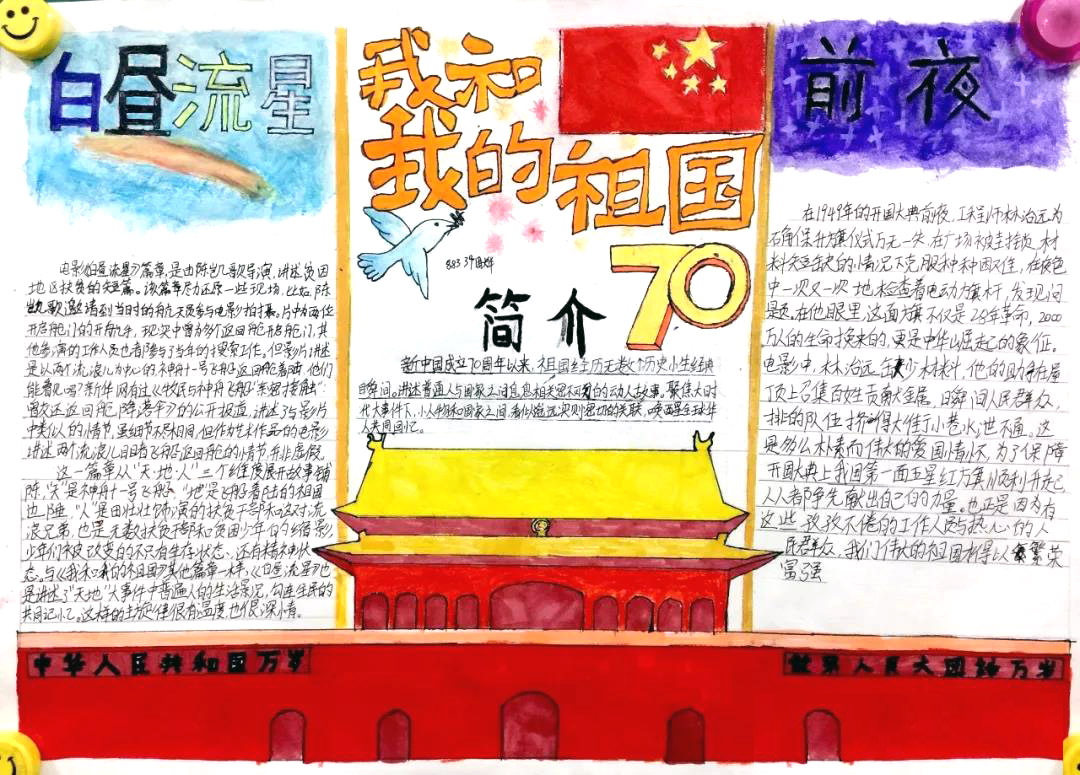 白昼流星
电影《白昼流星》篇章,是由陈凯歌导演,讲述贫困
地区扶贫的短篇。该篇章尽力还原一些现场,比如陈
凯歌邀请到当时的航天员参与电影拍摄。片中两位
开启舱门的开舱手,现实中曾多个返回舱开启舱门,其
他参演的工作人员也都参与了当年的搜索工作。但影片讲述
是以两个流浪儿为
的神舟十一号飞船返回舱着陆,他们
能看见吗?新华网有过《牧民与神舟飞船"亲密接触":
曾次近返回舱降落伞》的公开报道,讲述了与影片
中类似的情节,虽细节不尽相同,但作为艺术作品的电影
讲述两个流浪儿目睹飞船返回舱的情节并非虚假。
这一篇章从"天、地、人"三个维度展开故事铺
陈,"天"是神舟十一号飞船,"地"是飞船着陆的祖国
边陲,"人"是田壮壮饰演的扶贫干部和这对流
浪兄弟,也是无数扶贫干部和贫困少年的缩影,
少年们未改变的不只有生存状态、还有精神状
态。与《我和我的祖国》其他篇章一样,《白昼流星》也
是讲述了"天地"大事件中普通人的生活景况,勾连全民的
共同记忆。这样的主旋律很有温度,也很深情。
我和
我的祖国
70
简介
新中国成立70周年以来,祖国经历无数个历史性经典
瞬间。讲述普通人与国家之间息息相关密不可分的动人故事。聚焦大时
代大事件下,小人物和国家之间,看似遥远实则密切的关联,唤醒全球华
人共同回忆。
前夜
在1949年的开国大典前夜,工程师林治远为
确保升旗仪式万无一失,在广场被封锁,材
料短缺的情况下克服种种困难,在夜色
中一次又一次地检查着电动旗杆,发现问
题。在他眼里,这面旗不仅是28年革命,2000
万人的生命换来的,更是中华崛起的象征。
电影中,林治远缺少材料,他的助手在屋
顶上召集百姓贡献金属,瞬间人民群众,
排的队伍挤得大住小巷水泄不通。这
是多么朴素而伟大的爱国情怀,为了保障
开国大典上我国第一面五星红旗顺利升起,
人人都争先献出自己的力量。也正是因为有
这些孜孜不倦的工作人员与热心的人
民群众,我们伟大的祖国才得以繁荣
富强
中华人民共和国万岁
世界人民大团结万岁